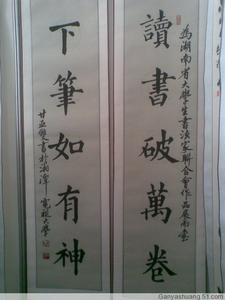 為湖南省大學生書法家聯合會作品展而書
讀書破萬卷
下筆如有神
甘亚雙書於湘潭
大學
Ganyashuang.51.com